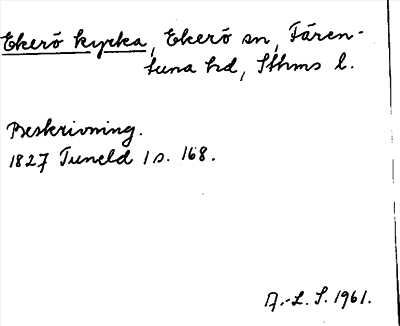 Ekerö kyrka, Ekerö sn, Fären-
tuna hd, Sthms l.
Beskrivning.
1827 Tuneld I s. 168.
A.-L. S. 1961.